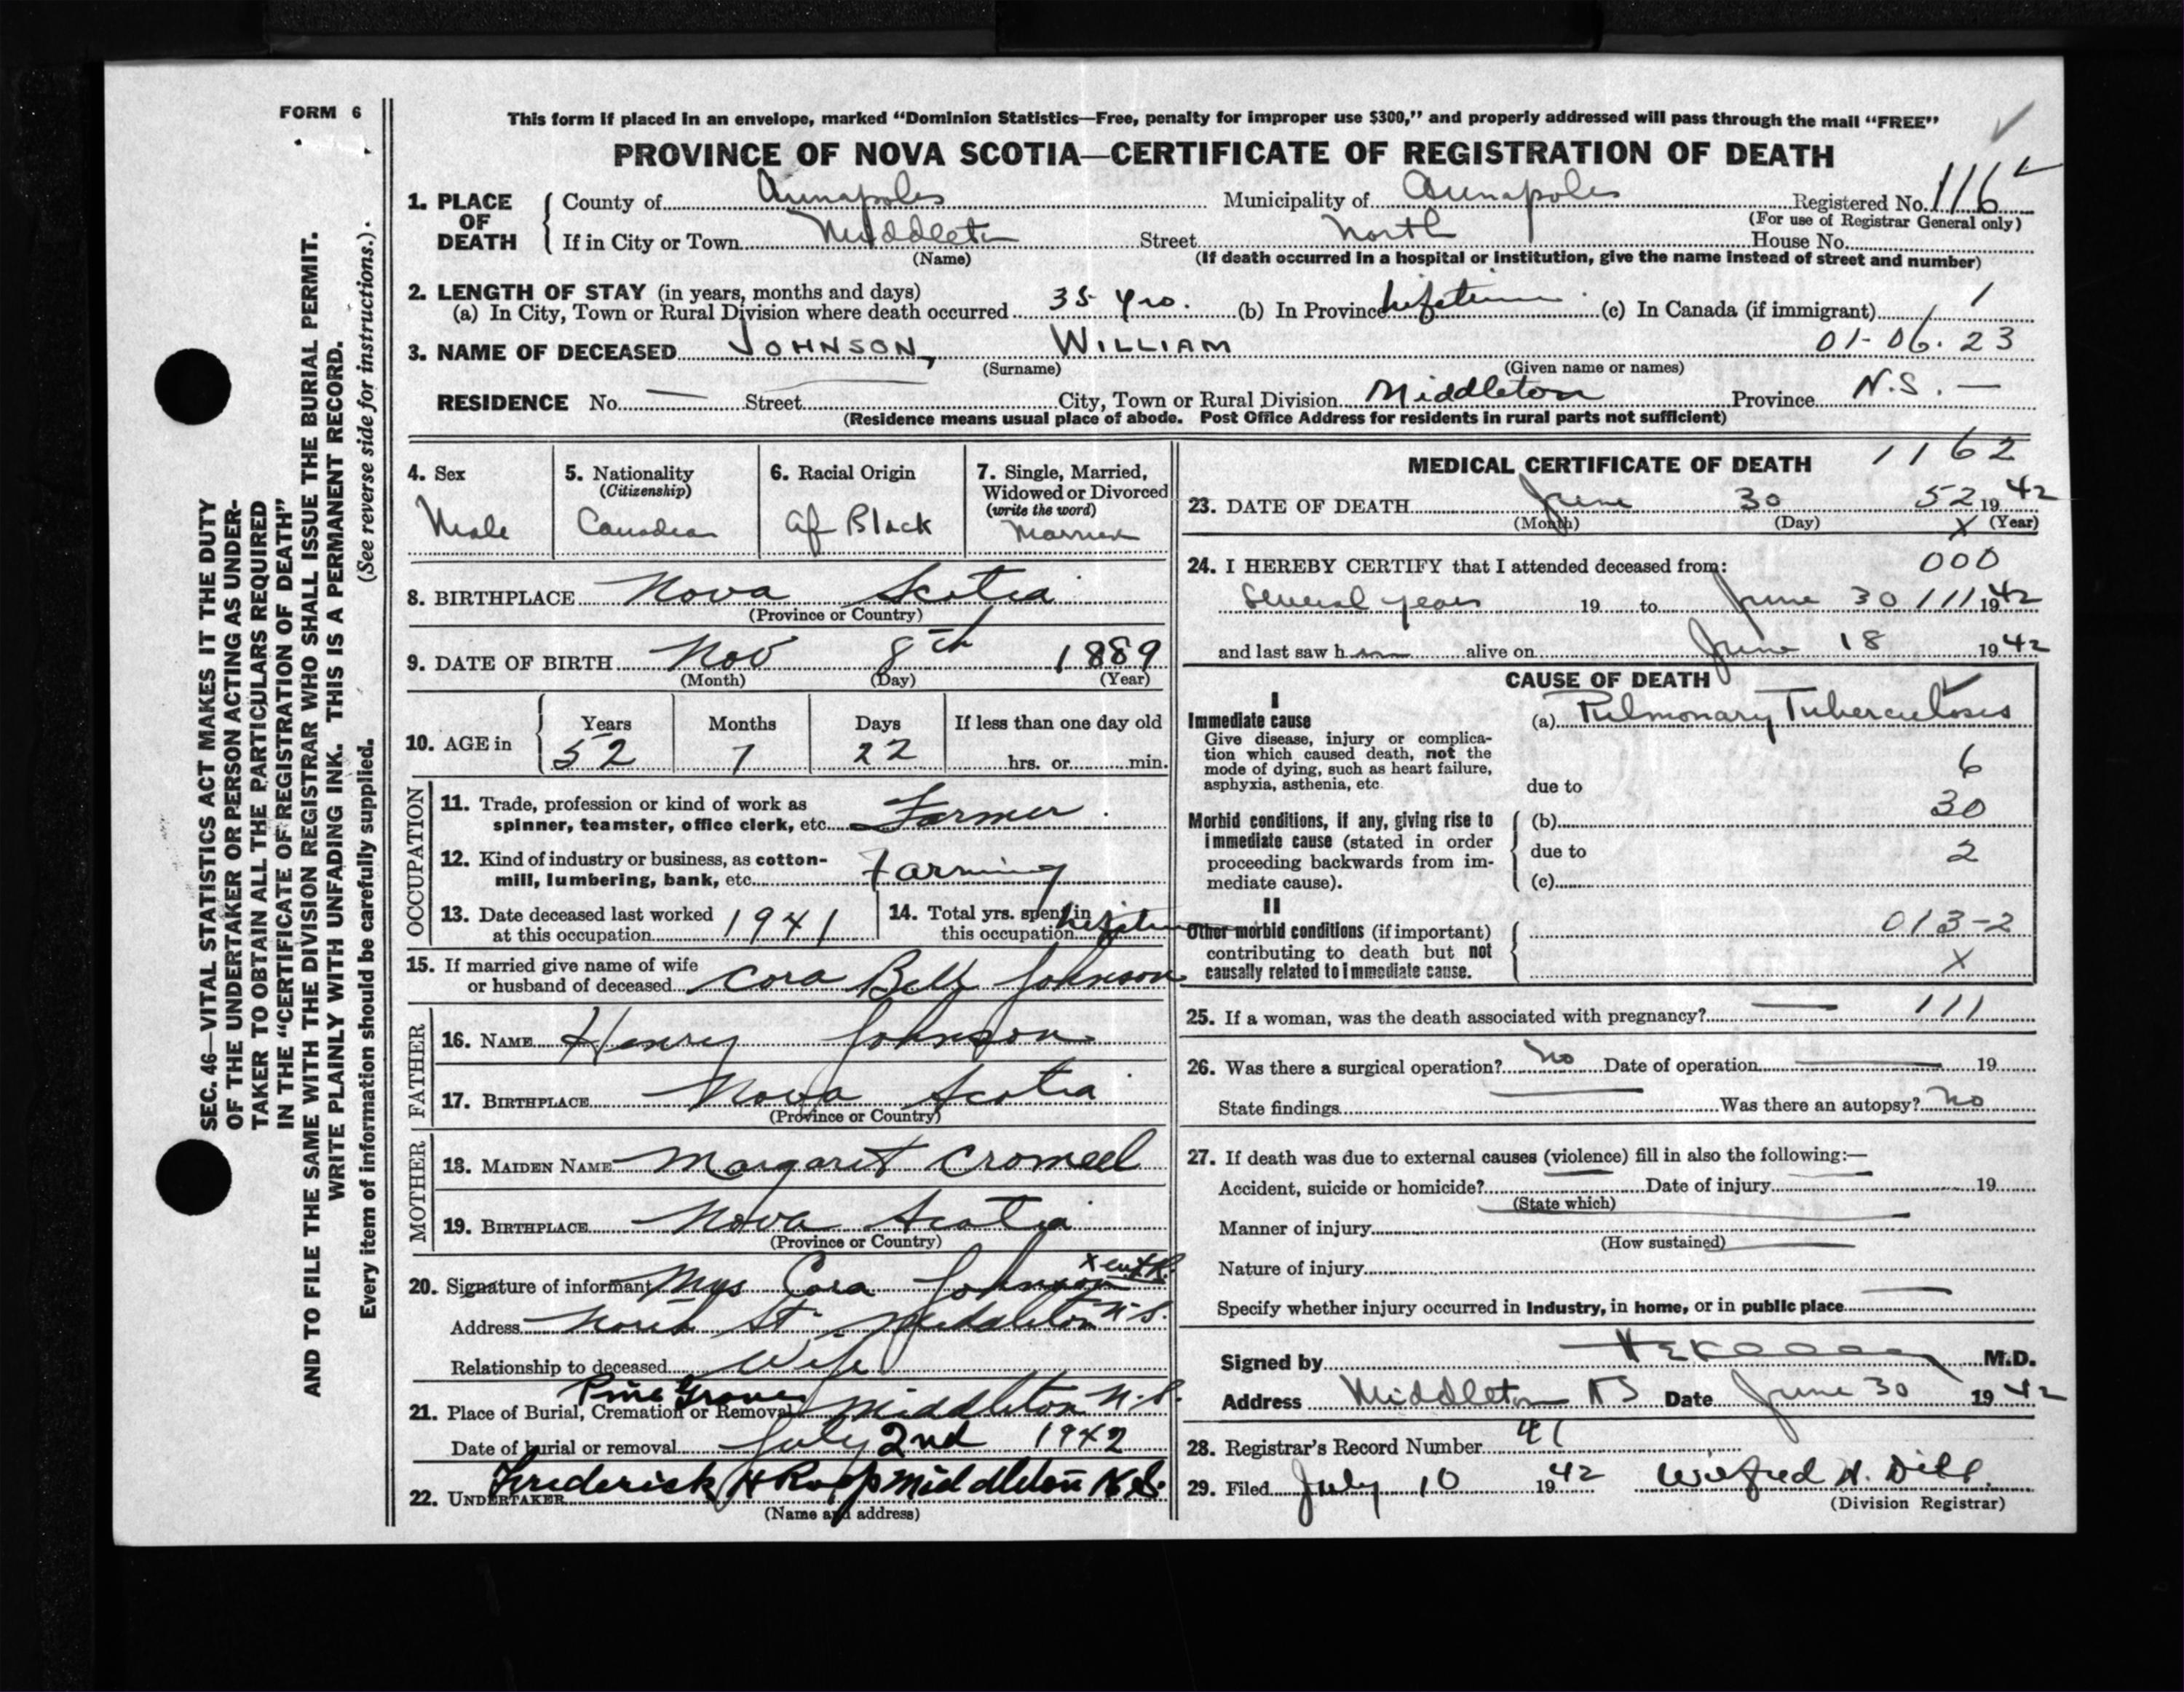 FORM 6
This form if placed in an envelope, marked “Dominion Statistics—Free, penalty for improper use $300,” and properly addressed will pass through the mail “FREE”
PROVINCE OF NOVA SCOTIA—CERTIFICATE OF REGISTRATION OF DEATH
SEC. 46—VITAL STATISTICS ACT MAKES IT THE DUTY
OF THE UNDERTAKER OR PERSON ACTING AS UNDER-
TAKER TO OBTAIN ALL THE PARTICULARS REQUIRED
IN THE “CERTIFICATE OF REGISTRATION OF DEATH”
AND TO FILE THE SAME WITH THE DIVISION REGISTRAR WHO SHALL ISSUE THE BURIAL PERMIT.
WRITE PLAINLY WITH UNFADING INK. THIS IS A PERMANENT RECORD.
Every item of information should be carefully supplied. (See reverse side for instructions.)
1. PLACE OF DEATH County of Annapolis Municipality of Annapolis Registered No. 116
(For use of Registrar General only)
If in City or Town Middleton Street North House No.
(Name) (If death occurred in a hospital or institution, give the name instead of street and number)
2. LENGTH OF STAY (in years, months and days)
(a) In City, Town or Rural Division where death occurred 35 yrs. (b) In Province Lifetime (c) In Canada (if immigrant) 1
3. NAME OF DECEASED JOHNSON, WILLIAM 01-06.23
(Surname) (Given name or names)
RESIDENCE No. — Street City, Town or Rural Division Middleton Province N.S. —
(Residence means usual place of abode. Post Office Address for residents in rural parts not sufficient)
4. Sex
Male
5. Nationality
(Citizenship)
Canadian
6. Racial Origin
Af Black
7. Single, Married,
Widowed or Divorced
(write the word)
Married
8. BIRTHPLACE Nova Scotia
(Province or Country)
9. DATE OF BIRTH Nov 8th 1889
(Month) (Day) (Year)
10. AGE in Years Months Days If less than one day old
52 7 22 hrs. or min.
OCCUPATION
11. Trade, profession or kind of work as
spinner, teamster, office clerk, etc. Farmer
12. Kind of industry or business, as cotton-
mill, lumbering, bank, etc. Farming
13. Date deceased last worked
at this occupation 1941
14. Total yrs. spent in
this occupation Lifetime
15. If married give name of wife
or husband of deceased Cora Bell Johnson
FATHER
16. NAME Henry Johnson
17. BIRTHPLACE Nova Scotia
(Province or Country)
MOTHER
18. MAIDEN NAME Margaret Cromeel
19. BIRTHPLACE Nova Scotia
(Province or Country)
20. Signature of informant Mrs Cora Johnson
Address North St Middleton N.S.
Relationship to deceased Wife
21. Place of Burial, Cremation or Removal Pine Grove Middleton N.S.
Date of burial or removal July 2nd 1942
22. UNDERTAKER Frederick H Roop Middleton N.S.
(Name and address)
MEDICAL CERTIFICATE OF DEATH 1162
23. DATE OF DEATH June 30 52 1942
(Month) (Day) X (Year)
24. I HEREBY CERTIFY that I attended deceased from: 000
Several years 19 to June 30 111 1942
and last saw h im alive on June 18 1942
CAUSE OF DEATH
I
Immediate cause
Give disease, injury or complica-
tion which caused death, not the
mode of dying, such as heart failure,
asphyxia, asthenia, etc.
(a) Pulmonary Tuberculosis
6
due to
30
Morbid conditions, if any, giving rise to
immediate cause (stated in order
proceeding backwards from im-
mediate cause).
(b)
due to 2
(c)
II
Other morbid conditions (if important)
contributing to death but not
causally related to immediate cause.
013-2
X
25. If a woman, was the death associated with pregnancy? — 111
26. Was there a surgical operation? No Date of operation 19
State findings Was there an autopsy? No
27. If death was due to external causes (violence) fill in also the following:—
Accident, suicide or homicide? Date of injury 19
(State which)
Manner of injury
(How sustained)
Nature of injury
Specify whether injury occurred in industry, in home, or in public place
Signed by M.D.
Address Middleton NS Date June 30 1942
28. Registrar's Record Number 41
29. Filed July 10 1942 Wilfred H. Dill.
(Division Registrar)